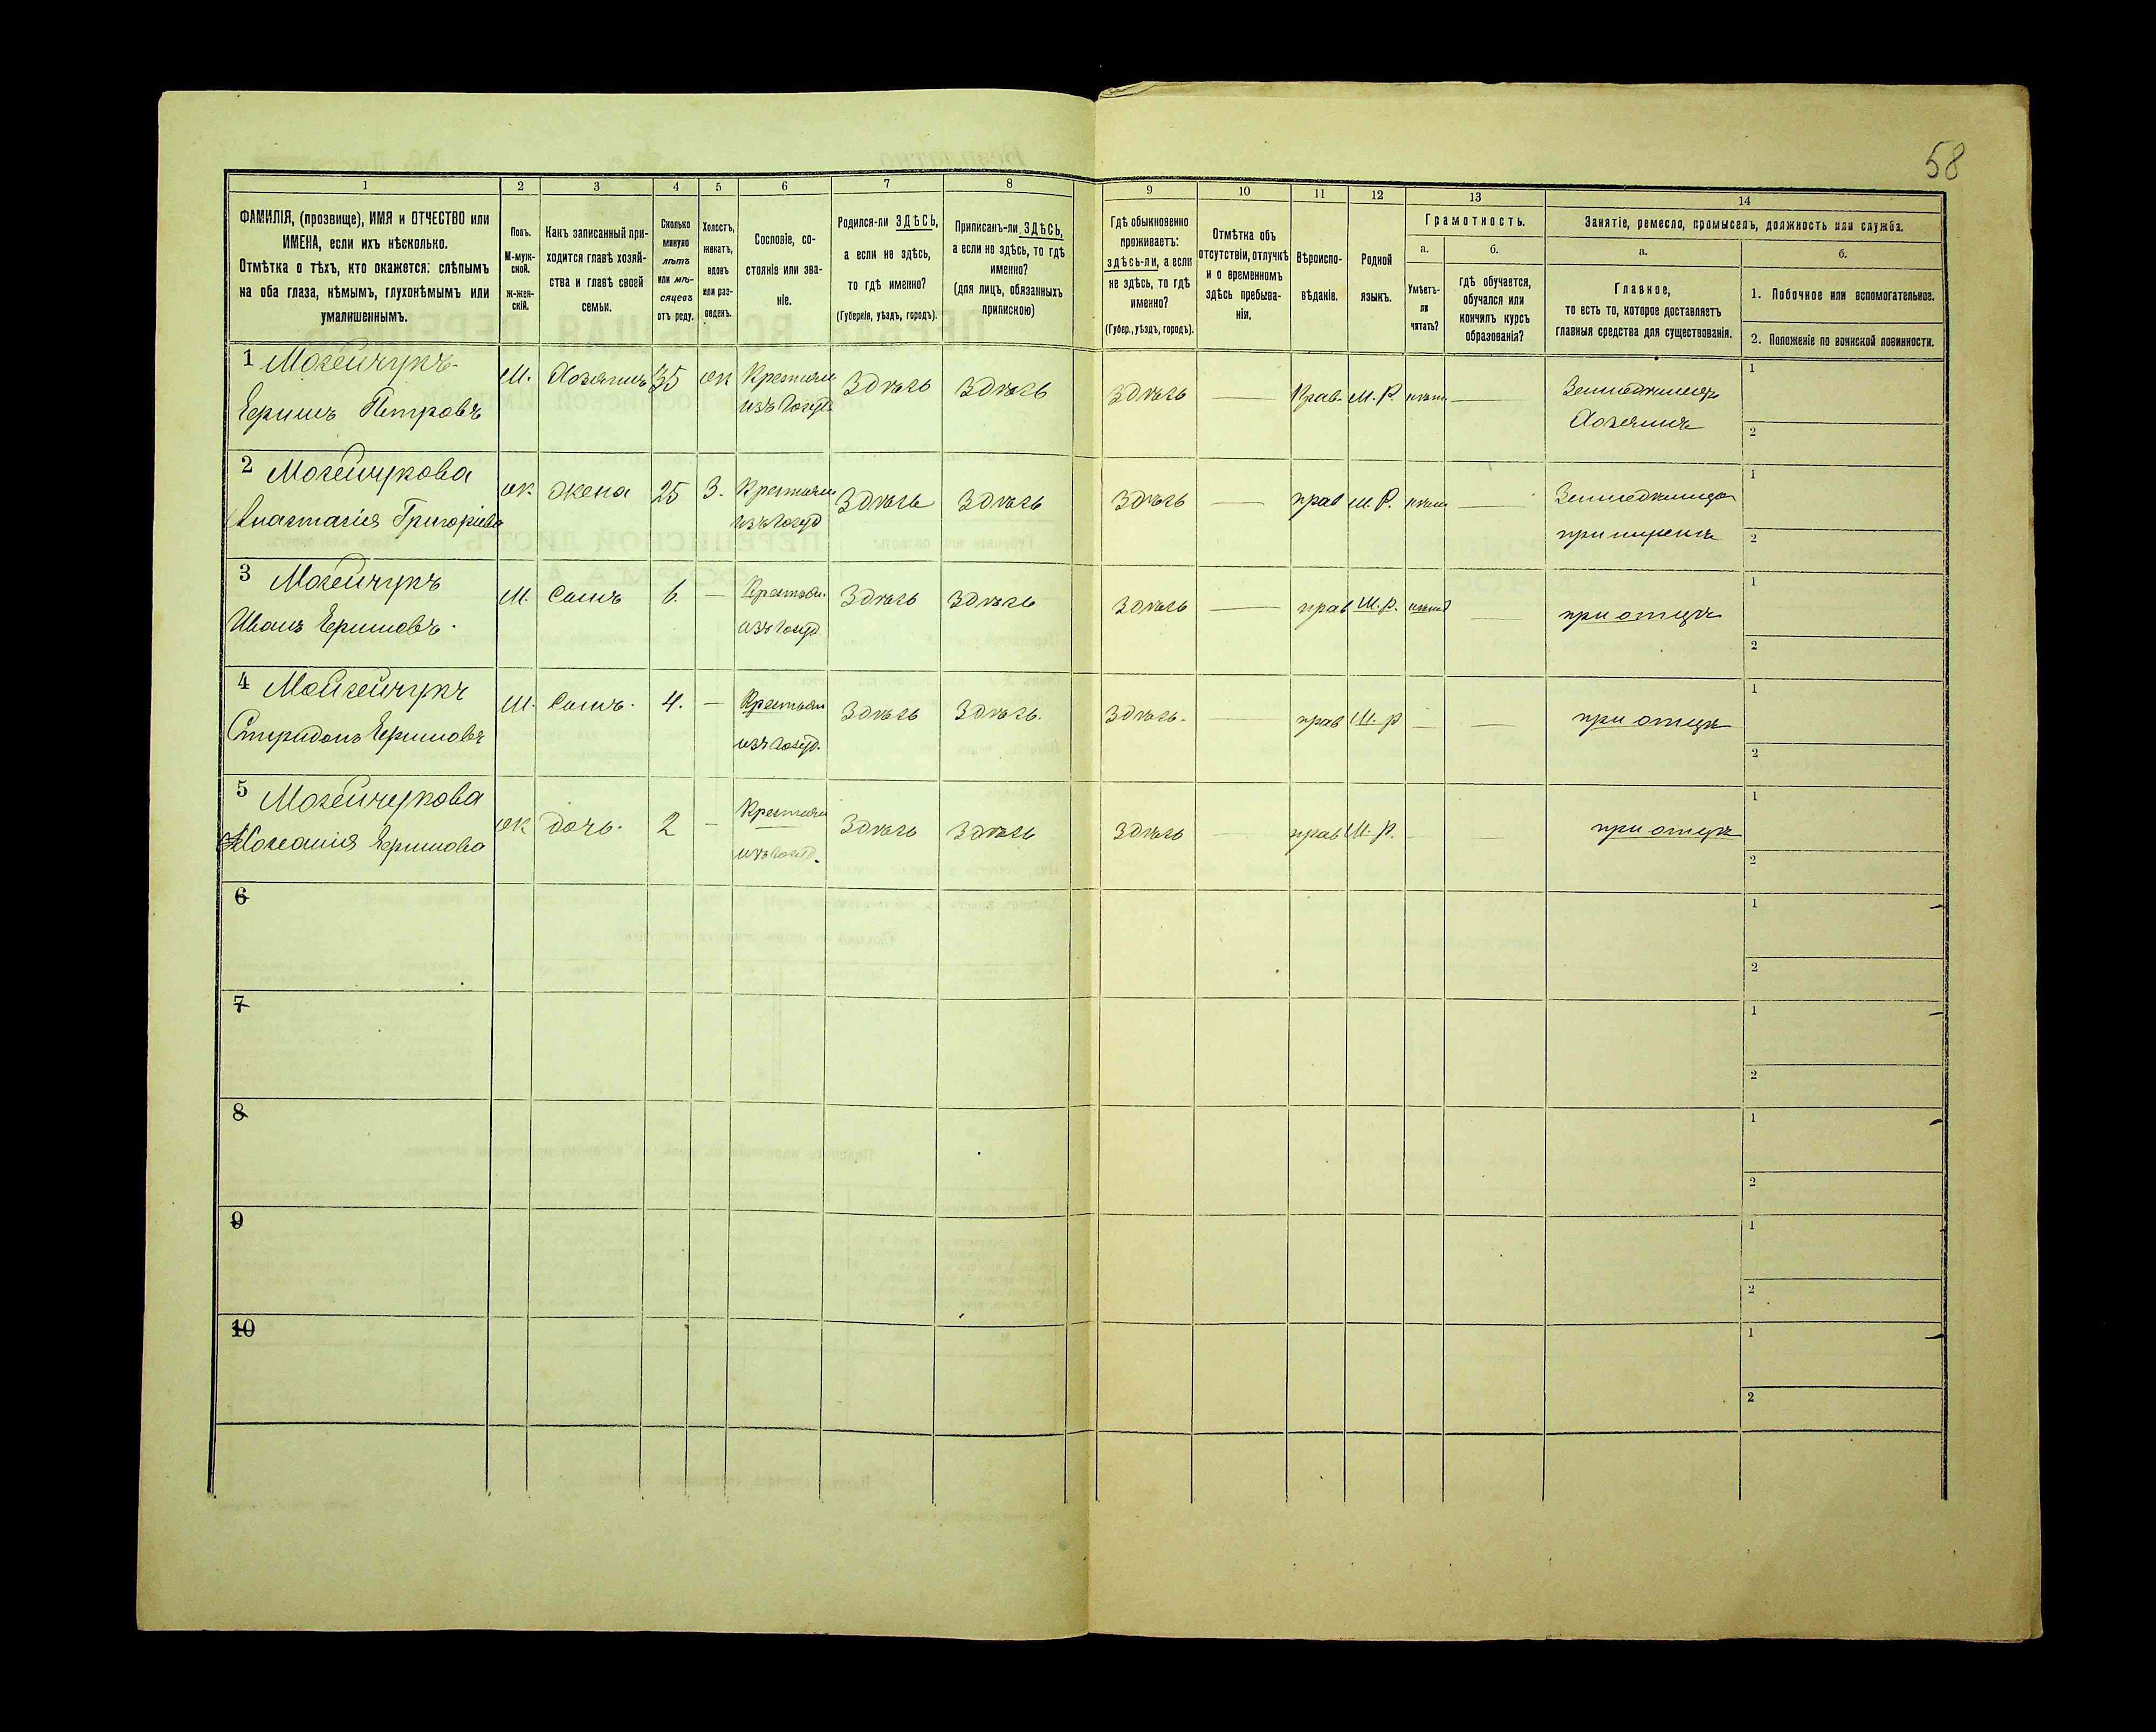 58
1 2 3 4 5 6 7 8 9 10 11 12 13 14
ФАМИЛІЯ, (прозвище), ИМЯ и ОТЧЕСТВО или
ИМЕНА, если ихъ нѣсколько.
Отмѣтка о тѣхъ, кто окажется: слѣпымъ
на оба глаза, нѣмымъ, глухонѣмымъ или
умалишеннымъ.
Полъ.
М-муж-
ской.
Ж-жен-
скій.
Какъ записанный при-
ходится главѣ хозяй-
ства и главѣ своей
семьи.
Сколько
минуло
лѣтъ
или мѣ-
сяцевъ
отъ роду.
Холостъ,
женатъ,
вдовъ
или раз-
веденъ.
Сословіе, со-
стояніе или зва-
ніе.
Родился-ли ЗДѢСЬ,
а если не здѣсь,
то гдѣ именно?
(Губернія, уѣздъ, городъ).
Приписанъ-ли ЗДѢСЬ,
а если не здѣсь, то гдѣ
именно?
(для лицъ, обязанныхъ
припискою)
Гдѣ обыкновенно
проживаетъ:
здѣсь-ли, а если
не здѣсь, то гдѣ
именно?
(Губер., уѣздъ, городъ).
Отмѣтка объ
отсутствіи, отлучкѣ
и о временномъ
здѣсь пребыва-
ніи.
Вѣроиспо-
вѣданіе.
Родной
языкъ.
Грамотность.
а.
Умѣетъ-
ли
читать?
б.
гдѣ обучается,
обучался или
кончилъ курсъ
образованія?
Занятіе, ремесло, промыселъ, должность или служба.
а.
Главное,
то есть то, которое доставляетъ
главныя средства для существованія.
б.
1. Побочное или вспомогательное.
2. Положеніе по воинской повинности.
1 Мосейчукъ М. Хозяинъ 35 ж Крестьян Здѣсь Здѣсь Здѣсь — Прав. М. Р. нѣтъ — 1
Петровъ изъ госуд Хозяинъ 2
2 Мосейчукова ж. жена 25 З. Крестьян Здѣсь Здѣсь Здѣсь — прав М. Р. — 1
Анастасія Григоріева изъ госуд 2
3 Мосейчукъ М. Сынъ 6. — Крестьян. Здѣсь Здѣсь Здѣсь — прав М. р. — при отцѣ 1
Иванъ изъ госуд. 2
4 Мойсейчукъ М. Сынъ. 4. — Крестьян Здѣсь Здѣсь. Здѣсь. — прав М. р — — при отцѣ 1
Спиридонъ изъ госуд. 2
5 Мосейчукова ж дочь. 2 — Крестьян Здѣсь Здѣсь Здѣсь — прав М. р. — — при отцѣ 1
изъ госуд. 2
6 1
2
7 1
2
8 1
2
9 1
2
10 1
2